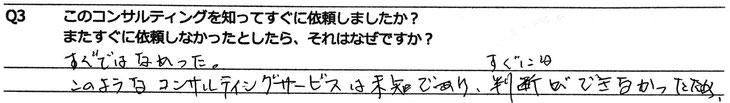 Q3 このコンサルティングを知ってすぐに依頼しましたか？
またすぐに依頼しなかったとしたら、それはなぜですか？
すぐではなかった。
すぐには
このようなコンサルティングサービスは未知であり、判断ができなかったため、